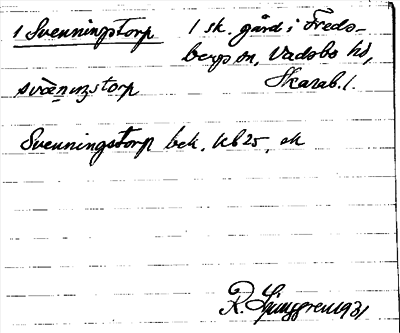 1 Svenningstorp 1 sk. gård i Freds-
bergs sn, Vadsbo hd,
Skarab. l.
svän̥iŋstorp
Svenningstorp bek. Kb 25, ek
R. Ljunggren 1931